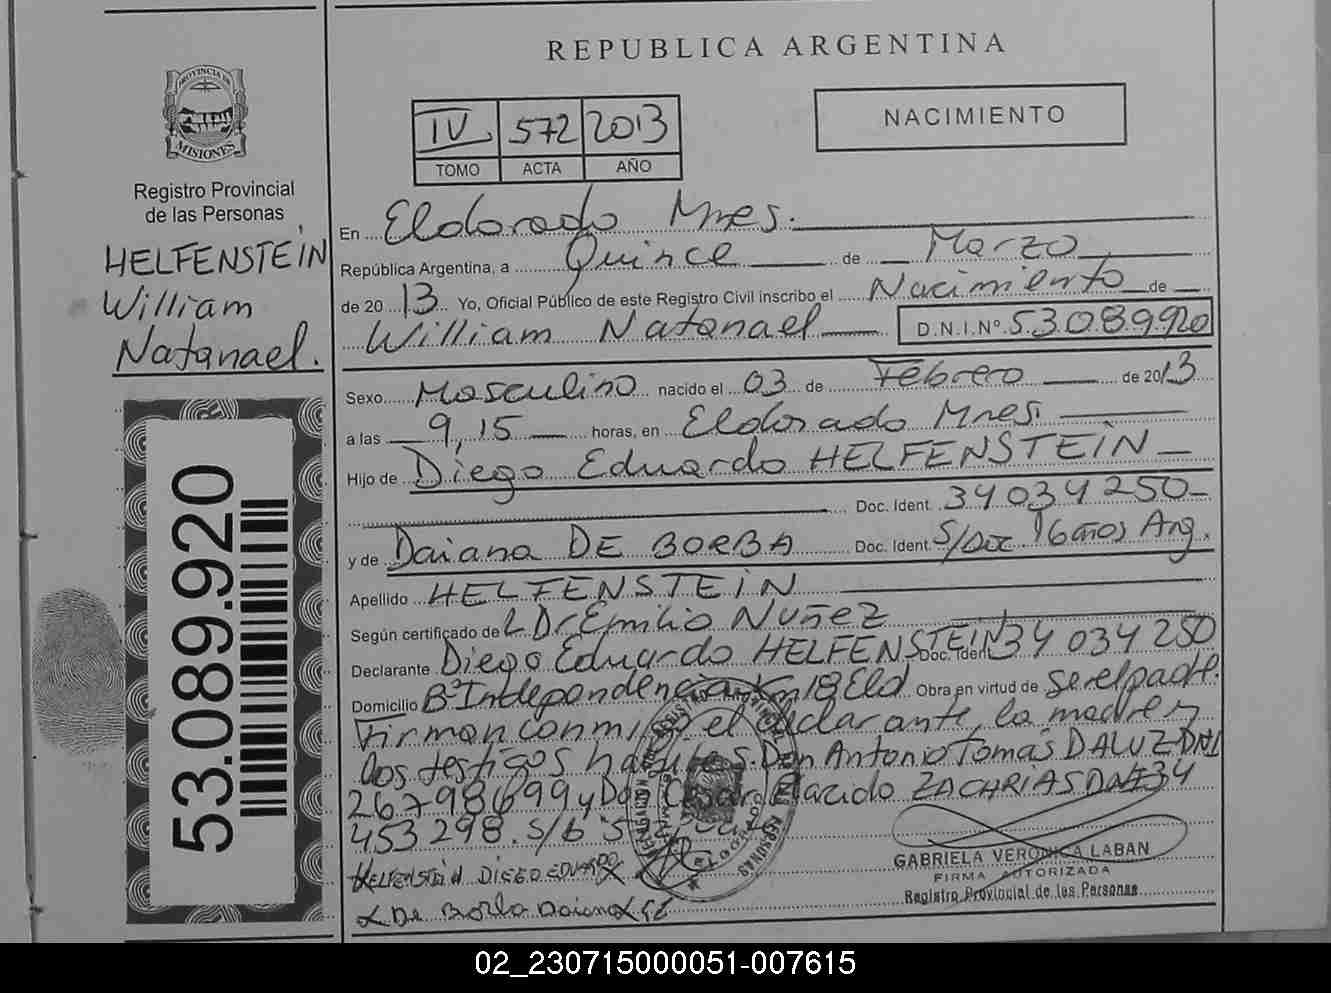 REPUBLICA ARGENTINA
PROVINCIA DE
MISIONES
Registro Provincial
de las Personas
HELFENSTEIN
William
Natanael.
53.089.920
IV 572 2013
TOMO ACTA AÑO
NACIMIENTO
En Eldorado Mnes.
República Argentina, a Quince de Marzo
de 20 13 Yo, Oficial Público de este Registro Civil inscribo el Nacimiento de
William Natanael D.N.I.Nº 53089920
Sexo Masculino nacido el 03 de Febrero de 2013
a las 9,15 horas, en Eldorado Mnes.
Hijo de Diego Eduardo HELFENSTEIN
Doc. Ident. 34034250
y de Daiana DE BORBA Doc. Ident. S/Doc 16 años Arg.
Apellido HELFENSTEIN
Según certificado de L Dr Emilio NUÑEZ
Declarante Diego Eduardo HELFENSTEIN Doc. Ident. 34 034 250
Domicilio Bº Independencia Km 18 Eld Obra en virtud de ser el padre.
Firman conmigo el declarante, la madre y
los testigos hábiles. Don Antonio Tomás DALUZ DNI
26798699 y Don César Placido ZACHRIAS DNI 34
453298. S/b
HELFENSTEIN DIEGO EDUARDO
De Borba Daiana
GABRIELA VERONICA LABAN
FIRMA AUTORIZADA
Registro Provincial de las Personas
02_230715000051-007615